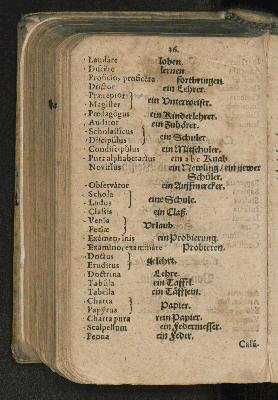 36.
Laudare loben.
Discere lernen
Proficio, proficere fortbringen.
Doctor ein Lehrer.
Præceptor
Magister } ein Unterweiser.
Pædagogus ein Kinderlehrer.
Auditor ein Zuhörer.
Scholasticus
Discipulus } ein Schuler
Condiscipulus ein Mitschuler.
Puer alphabetarius ein a b c Knab
Novitius ein Newling / ein newer
Schüler.
Observator ein Auffmercker.
Schola
Ludus } eine Schule.
Classis ein Claß.
Venia
Feriæ } Urlaub.
Examen, inis ein Probierung.
Examino, examinare Probieren.
Doctus
Eruditus } gelehrt.
Doctrina Lehre.
Tabula ein Taffel.
Tabella ein Täfflein.
Charta
Papyrus } Papier.
Charta pura rein Papier.
Scalpellum ein Federmesser.
Penna ein Feder.